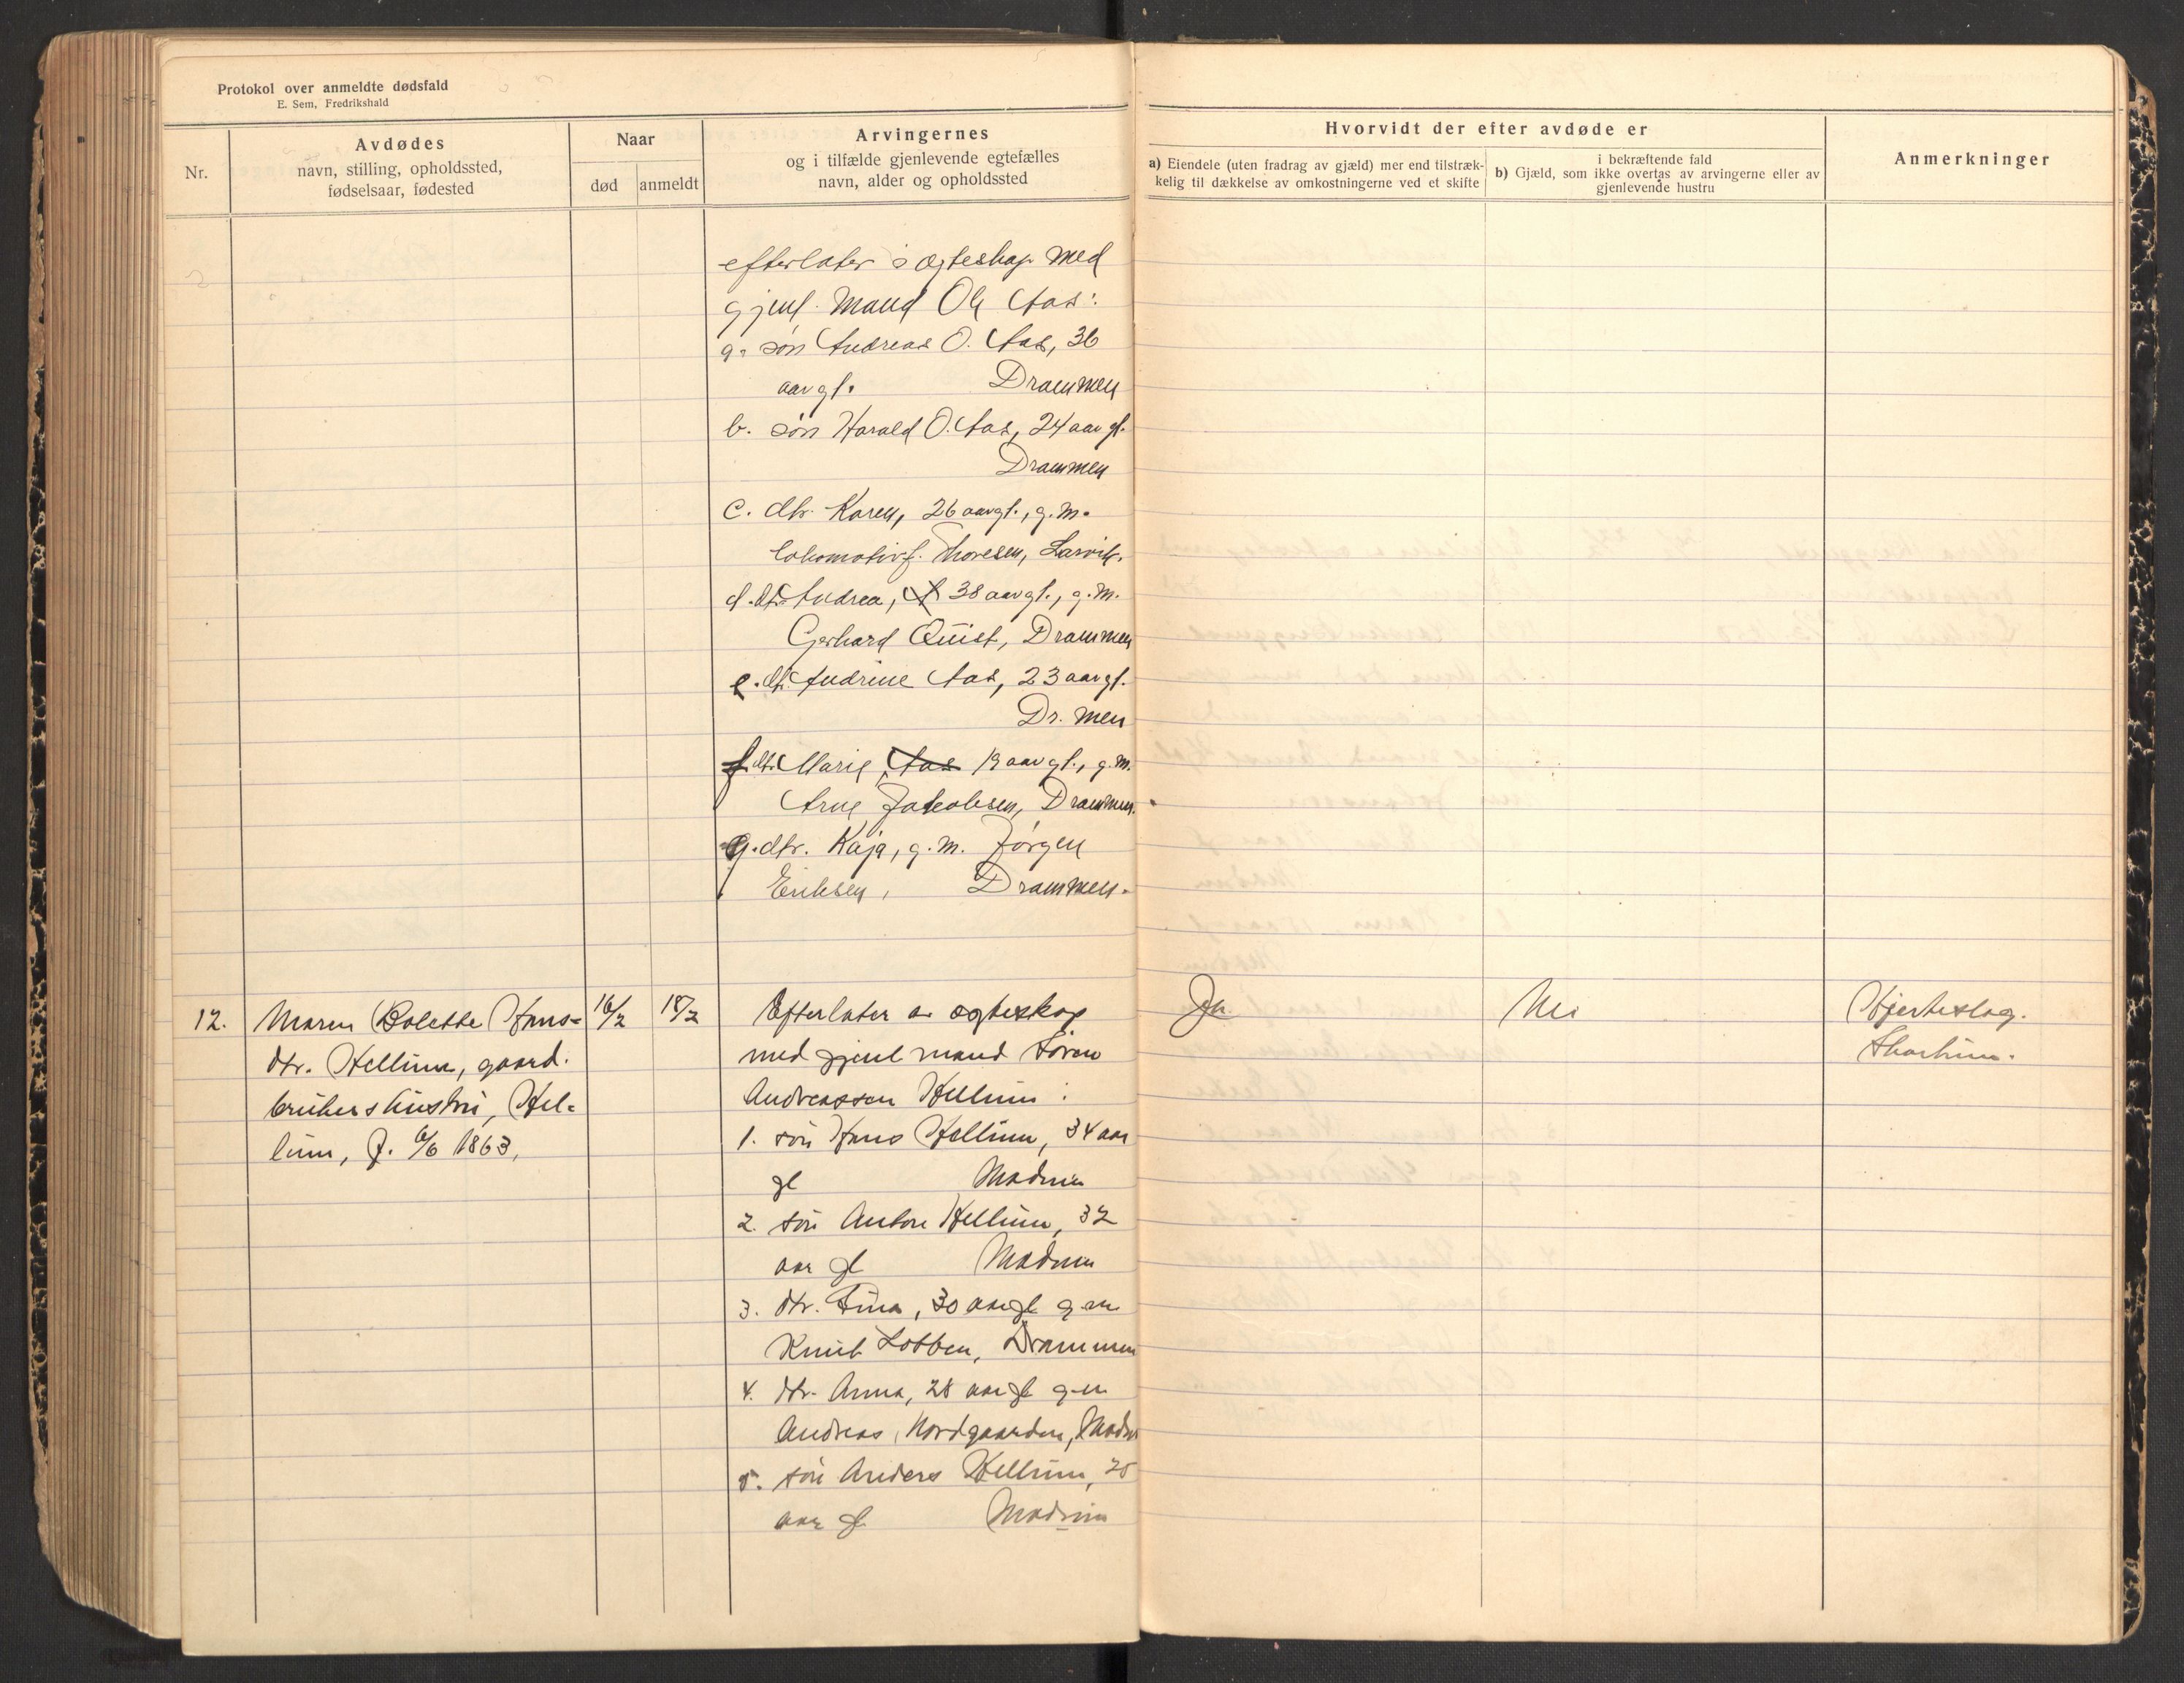 Protokol over anmeldte dødsfald
E. Sem, Fredrikshald
Nr.
Avdødes
navn, stilling, opholdssted,
fødselsaar, fødested
Naar
død
anmeldt
Arvingernes
og i tilfælde gjenlevende egtefælles
navn, alder og opholdssted
Hvorvidt der efter avdøde er
a) Eiendele (uten fradrag av gjæld) mer end tilstræk-
kelig til dækkelse av omkostningerne ved et skifte
i bekræftende fald
b) Gjæld, som ikke overtas av arvingerne eller av
gjenlevende hustru
Anmerkninger
efterlater i ægteskap med
gjenl. Mand Ole Aas:
a. søn Andreas O. Aas, 36
aar gl. Drammen
b. søn Harald O. Aas, 24 aar gl.
Drammen
c. dtr. Karen, 26 aar gl., g.m.
lokomotivf. Thoresen, Larvik.
d. dt. Andrea, 38 aar gl., g.m.
Gerhard Quist, Drammen
e. dt. Andrine Aas, 23 aar gl.
Dr.men
f. dt. Marie Aas 19 aar gl., g.m.
Arne Jakobsen, Drammen.
g. dtr. Kaja, g.m. Jørgen
Eriksen, Drammen.
12. Maren Bolette Hans= 16/2 18/2 Efterlater av ægteskap Ja Nei Hjerteslag.
dtr. Hellum, gaard. med gjenl mand Søren
brukers hustru, Hel= Andreassen Hellum:
lum, f. 6/6 1863, 1. søn Hans Hellum, 34 aar
gl Modum
2. søn Anton Hellum, 32
aar gl Modum
3. dtr. Tina, 30 aar gl g.m
Knut Lobben, Drammen
4. dtr. Anna, 28 aar gl g.m
Andreas Nordgaarden, Modum
5. søn Anders Hellum, 25
aar gl. Modum